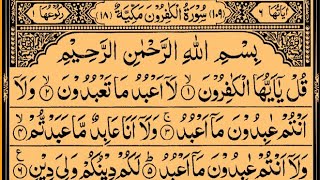 اٰیَاتُهَا ٦ (١٠٩) سُوْرَةُ الْكٰفِرُوْنَ مَكِّیَّةٌ (١٨) رُكُوْعُهَا ١
بِسْمِ اللّٰهِ الرَّحْمٰنِ الرَّحِیْمِ
قُلْ یٰۤاَیُّهَا الْكٰفِرُوْنَ ۙ﴿١﴾ لَاۤ اَعْبُدُ مَا تَعْبُدُوْنَ ۙ﴿٢﴾ وَلَاۤ
اَنْتُمْ عٰبِدُوْنَ مَاۤ اَعْبُدُ ۚ﴿٣﴾ وَلَاۤ اَنَا عَابِدٌ مَّا عَبَدْتُّمْ ۙ﴿٤﴾
وَلَاۤ اَنْتُمْ عٰبِدُوْنَ مَاۤ اَعْبُدُ ؕ﴿٥﴾ لَكُمْ دِیْنُكُمْ وَلِیَ دِیْنِ ﴿٦﴾